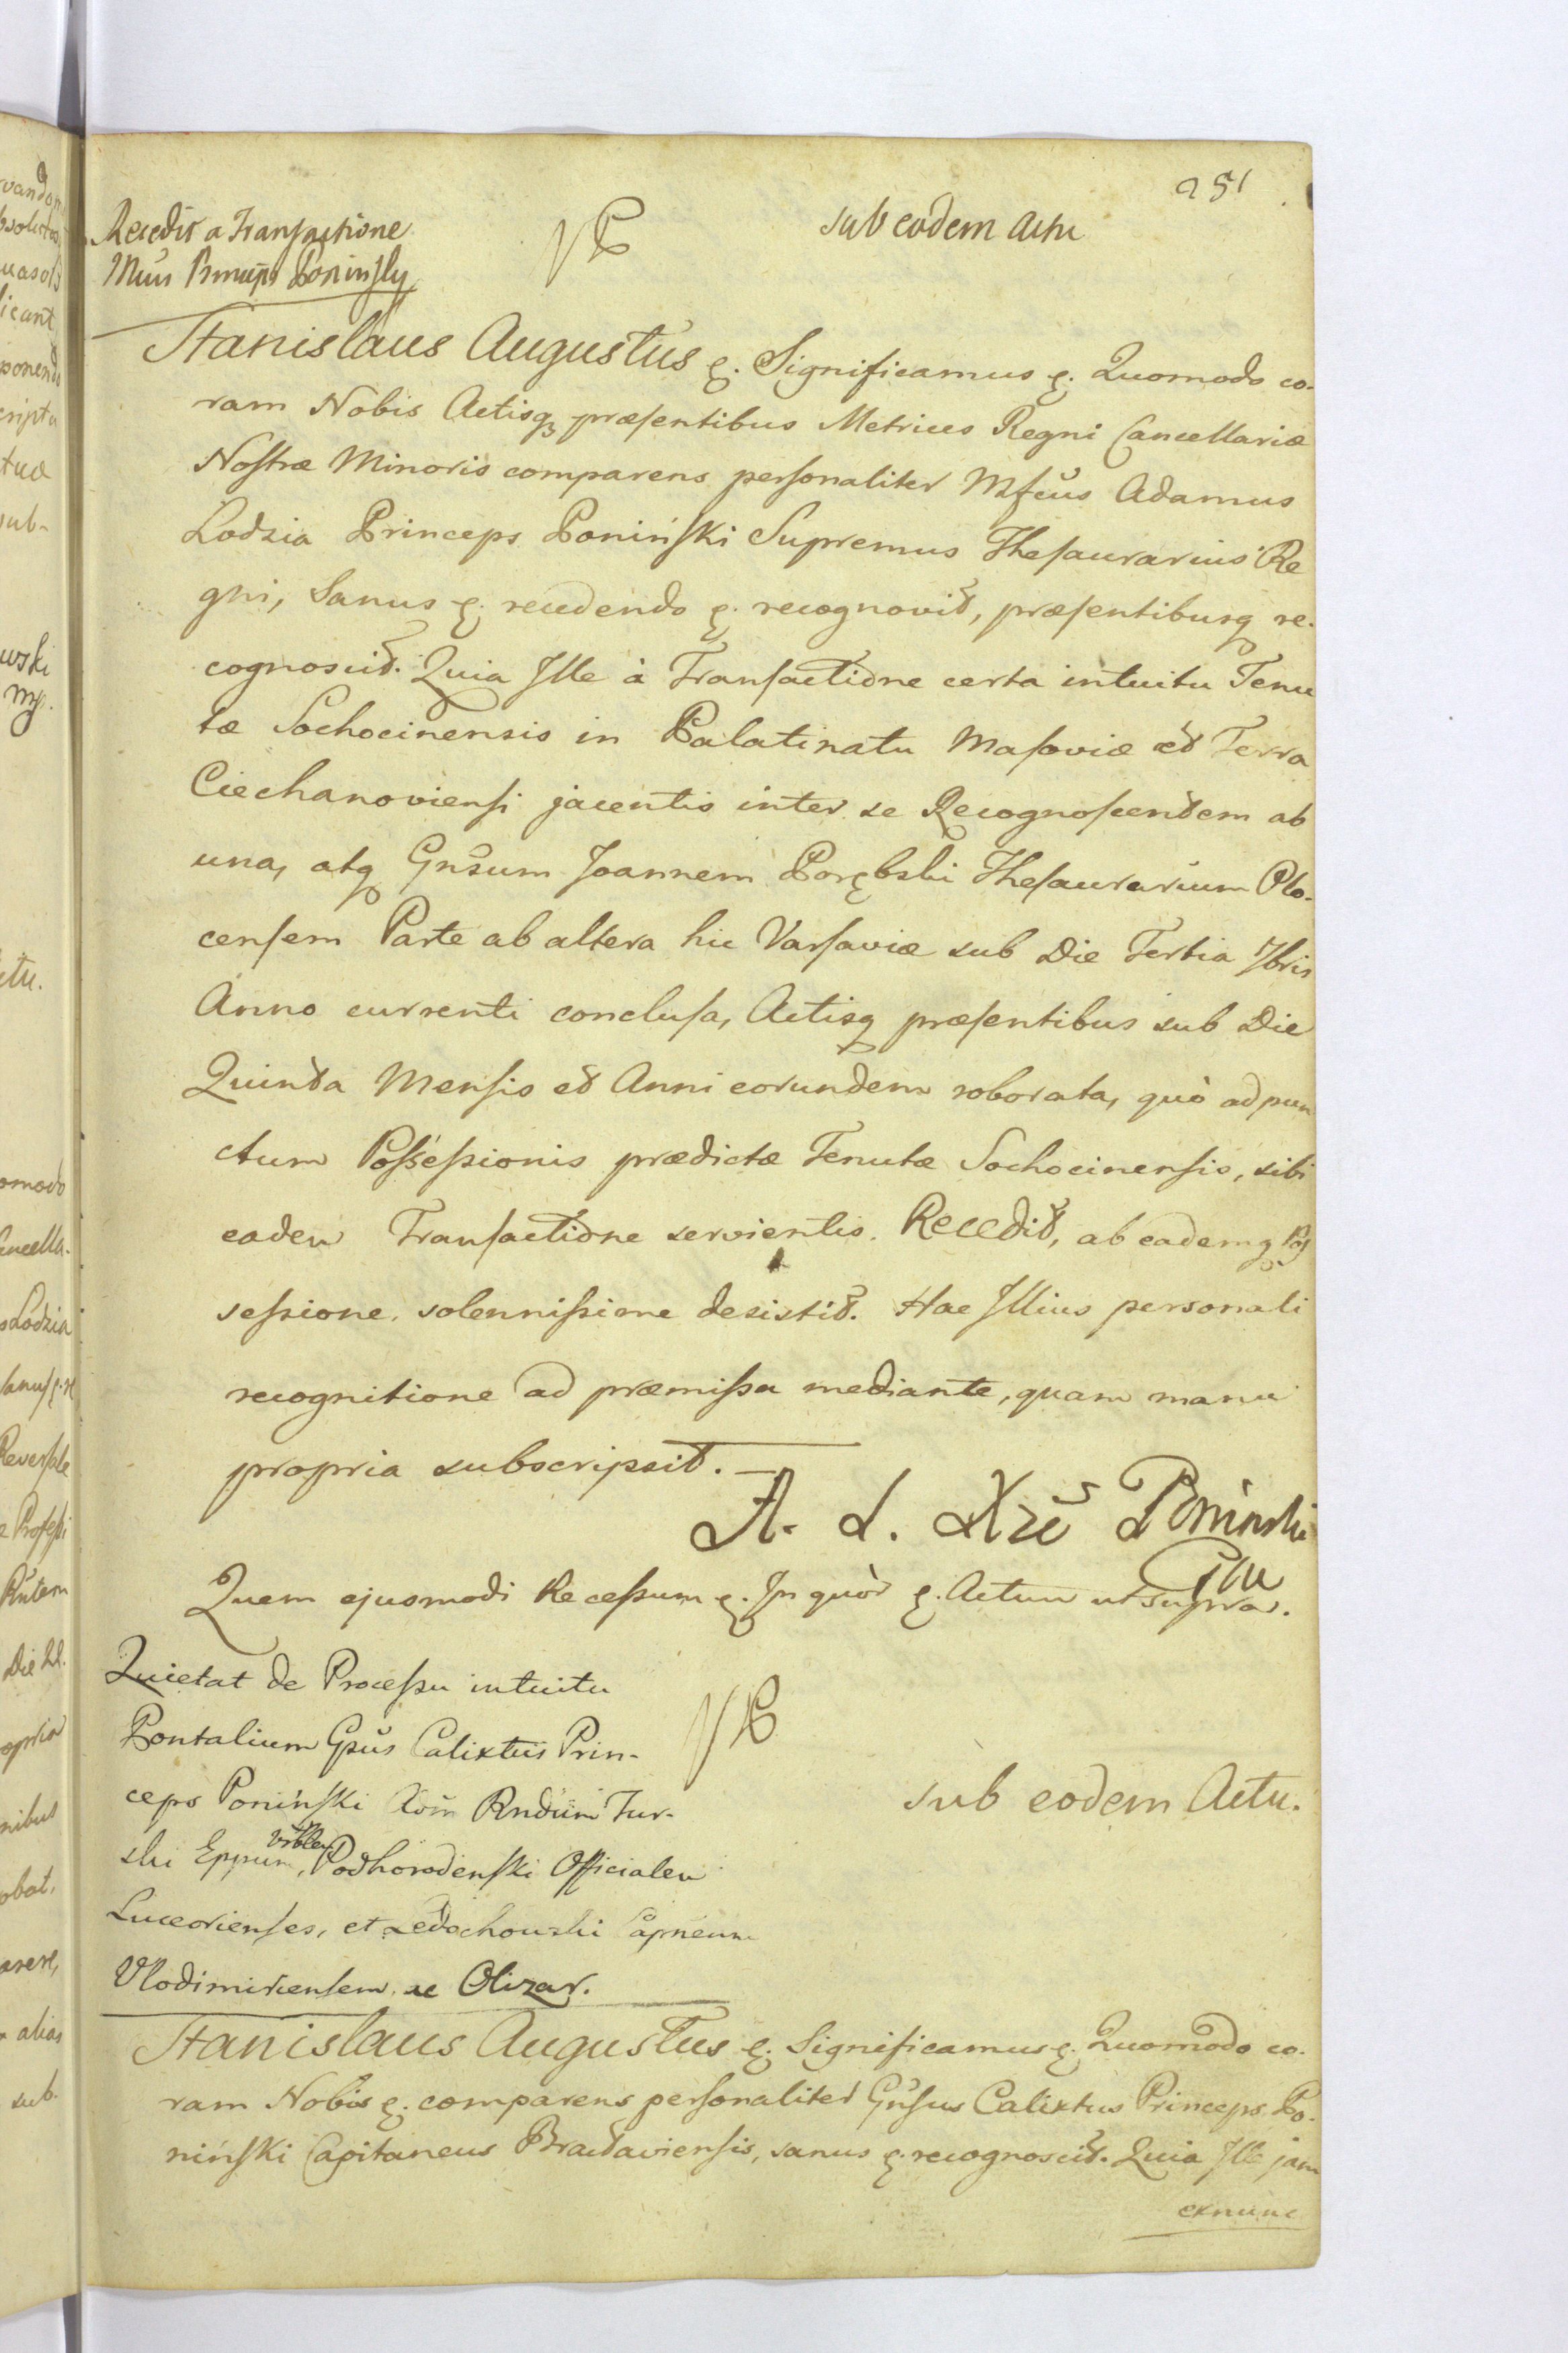 251
Recedit a Transactione
Mcus Princeps Poninsky
sub eodem Actu
Stanislaus Augustus &. Significamus &. Quomodo co-
ram Nobis Actisq præsentibus Metrices Regni Cancellariæ
Nostræ Minoris comparens personaliter Mfcus Adamus
Lodzia Princeps Poniński Supremus Thesaurarius Re
gni, Sanus &. recedendo &. recognovit, præsentibusq re-
cognoscit. Quia Ille à Transactione certa intuitu Tenu
tæ Sochocinensis in Palatinatu Masoviæ et Terra
Ciechanoviensi jacentis inter se Recognoscentem ab
una, atq Gnsum Joannem Porębski Thesaurarium Plo-
censem Parte ab altera hic Varsaviæ sub Die Tertia 7bris
Anno currenti conclusa, Actisq præsentibus sub Die
Quinta Mensis et Anni eorundem roborata, quò ad pun
ctum Possessionis prædictæ Tenutæ Sochocinensis, sibi
eadem Transactione servientis. Recedit, ab eademq Pos
sessione, solennissime desistit. Hac Illius personali
recognitione ad præmissa mediante, quam manu
propria subscripsit.
A. L. Xże Poninski
Quem ejusmodi Recessum &. In quor &. Actum ut supra.
Quietat de Processu intuitu
Pontalium Gsus Calixtus Prin-
ceps Poniński Rndum Tur-
ski Eppum, Podhorodenski Officialem
Luceorienses, et Ledochowski Capneum
Vlodimiriensem, ac Olizar.
sub eodem Actu.
Stanislaus Augustus &. Significamus &. Quomodo co-
ram Nobis &. comparens personaliter Gnsus Calixtus Princeps Po-
niński Capitaneus Braclaviensis, sanus &. recognoscit. Quia Ille jam
exnunc